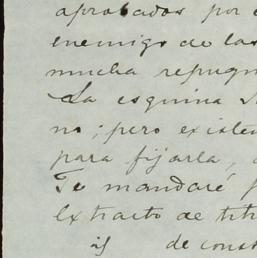 aprobados por
enemigo de las
mucha repugn
La esquina
no; pero existe
para fijarla,
Te mandaré
Extracto de
de const